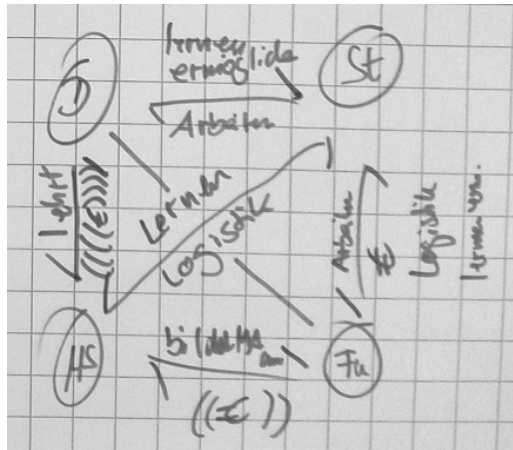 lernen
ermöglicht
D
St
Arbeiten
lehrt
((((€))))
Lernen
Logistik
Arbeiten
€
Logistik
HS
bildet MA
Fu
((€))